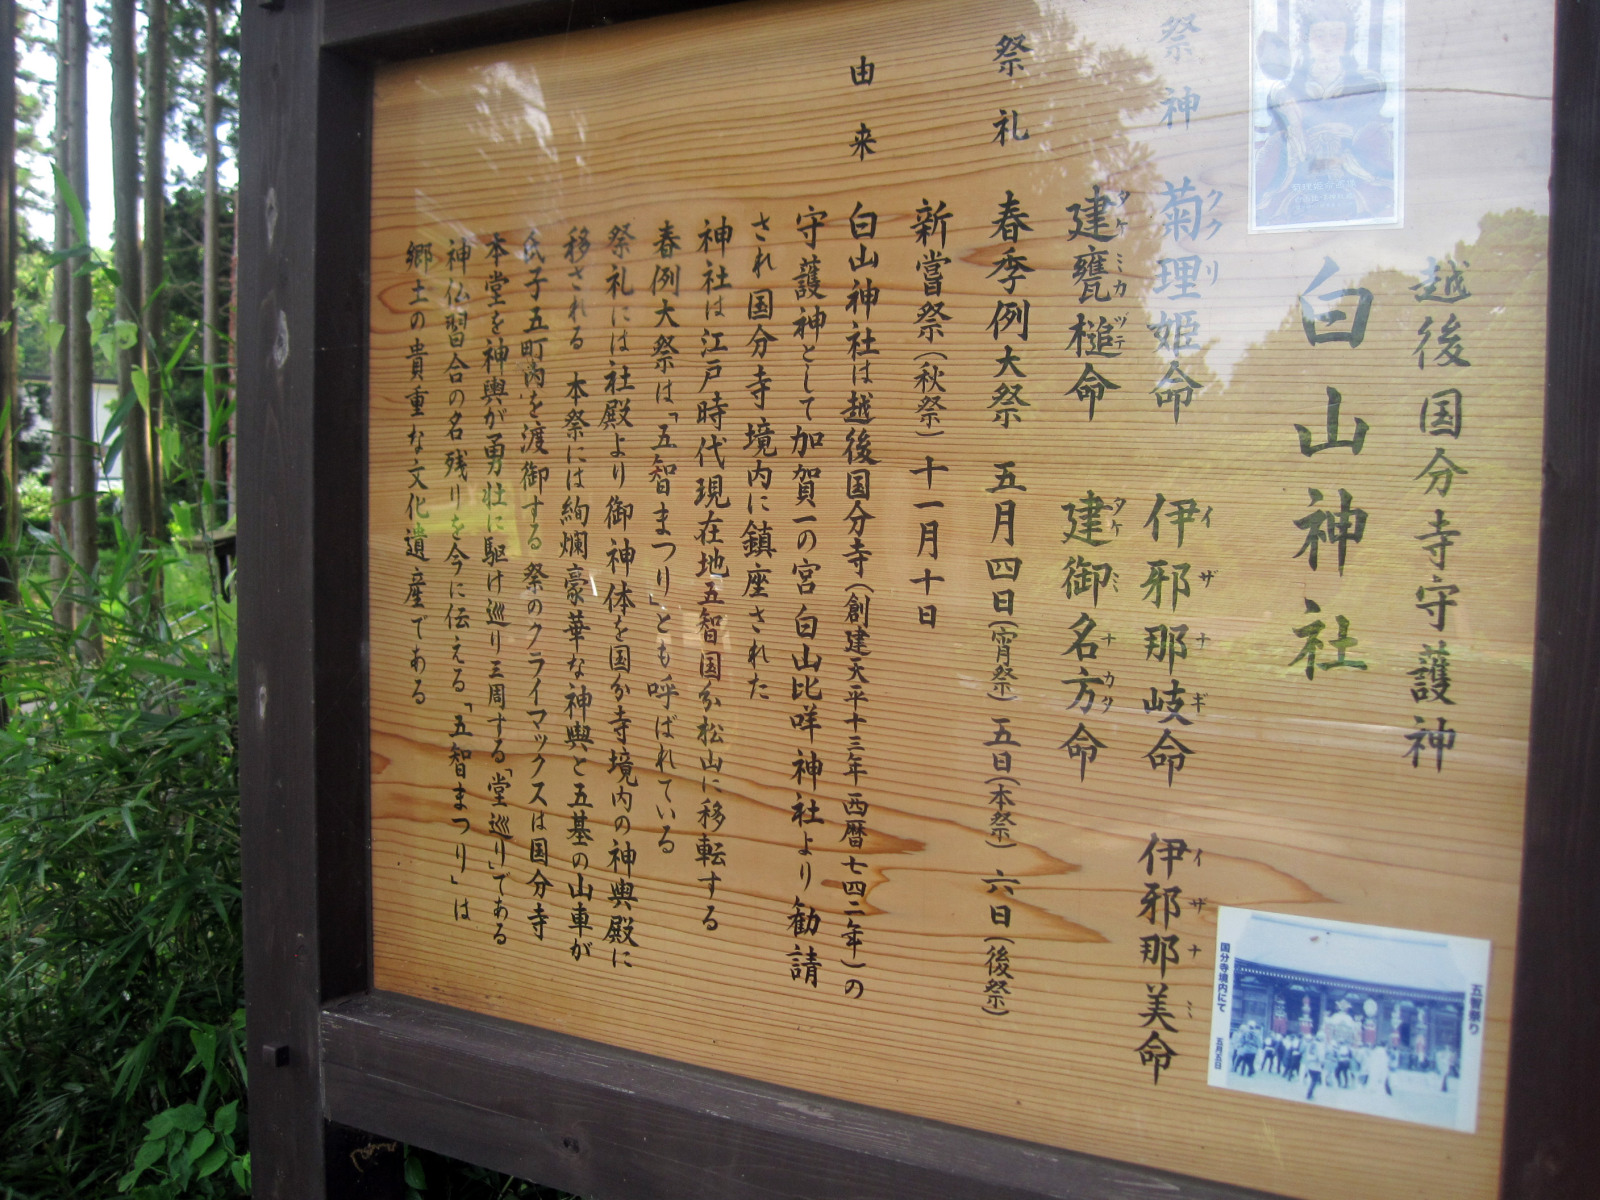 越後国分寺守護神
白山神社
祭神 菊理姫命 伊邪那岐命 伊邪那美命
ククリ イザナギ イザナミ
建甕槌命 建御名方命
タケミカヅチ タケミナカタ
祭礼 春季例大祭 五月四日(宵祭) 五日(本祭) 六日(後祭)
新嘗祭(秋祭) 十一月十日
由来 白山神社は越後国分寺(創建天平十三年 西暦七四二年)の
守護神として加賀一の宮白山比咩神社より勧請
され国分寺境内に鎮座された
神社は江戸時代現在地五智国分松山に移転する
春例大祭は「五智まつり」とも呼ばれている
祭礼には社殿より御神体を国分寺境内の神輿殿に
移される 本祭には絢爛豪華な神輿と五基の山車が
氏子五町内を渡御する 祭のクライマックスは国分寺
本堂を神輿が勇壮に駆け巡り三周する「堂巡り」である
神仏習合の名残りを今に伝える「五智まつり」は
郷土の貴重な文化遺産である
五智祭り
国分寺境内にて 五月五日